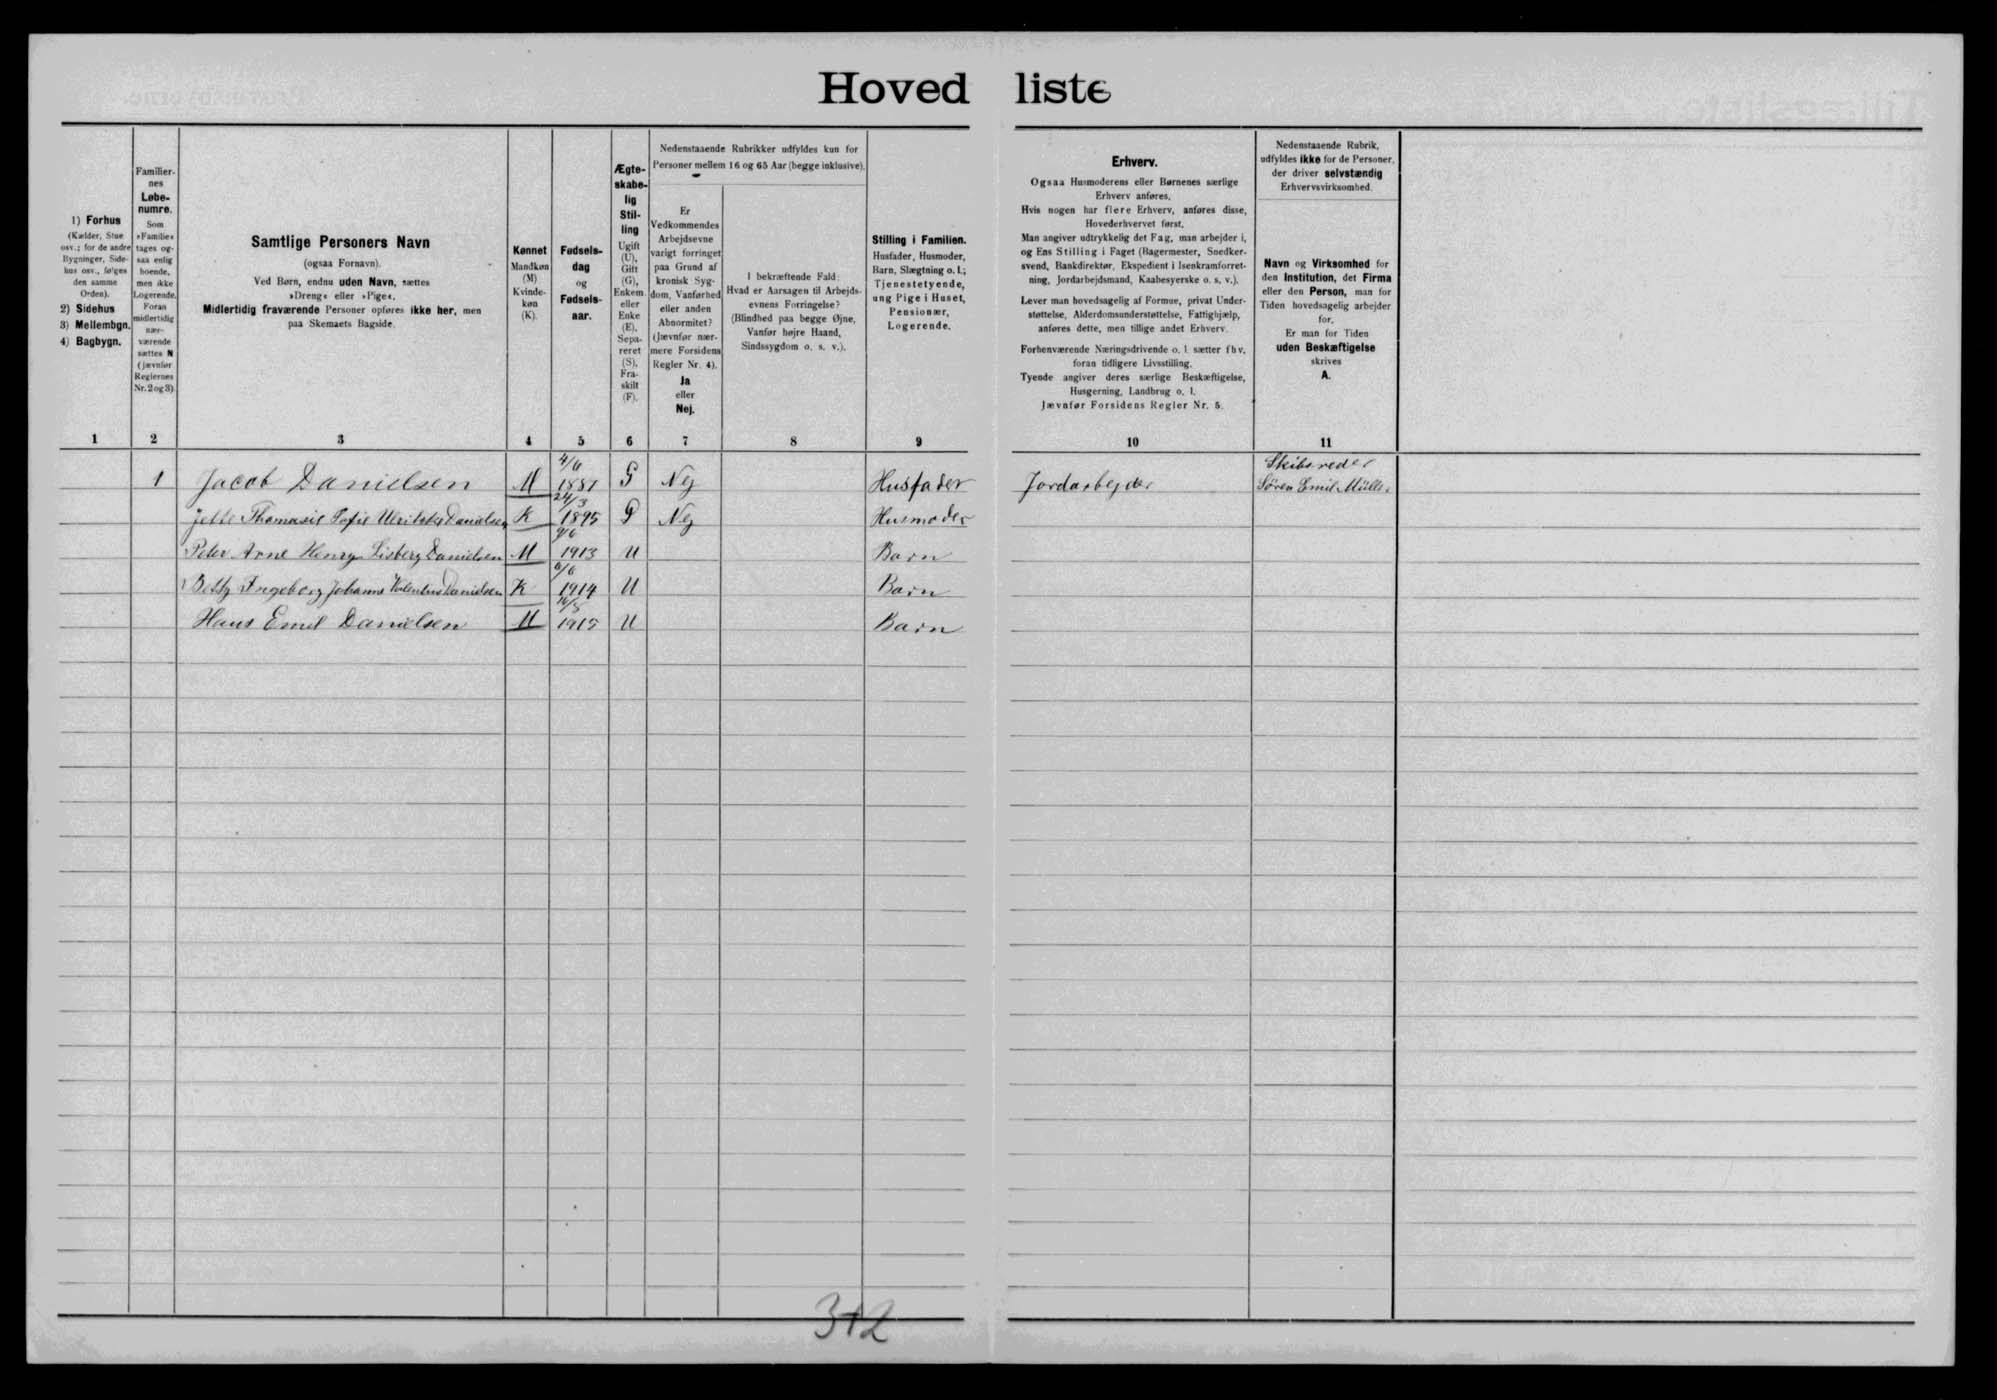 Hovedliste
1) Forhus
(Kælder, Stue
osv.; for de andre
Bygninger, Side-
hus osv., følges
den samme
Orden).
2) Sidehus
3) Mellembgn.
4) Bagbygn.
Familier-
nes
Løbe-
numre.
Som
»Familie«
tages og-
saa enlig
boende,
men ikke
Logerende.
Foran
midlertidig
nær-
værende
sættes N
(jævnfør
Reglernes
Nr. 2 og 3).
Samtlige Personers Navn
(ogsaa Fornavn).
Ved Børn, endnu uden Navn, sættes
»Dreng« eller »Pige«.
Midlertidig fraværende Personer opføres ikke her, men
paa Skemaets Bagside.
Kønnet
Mandkøn
(M)
Kvinde-
køn
(K).
Fødsels-
dag
og
Fødsels-
aar.
Ægte-
skabe-
lig
Stil-
ling
Ugift
(U),
Gift
(G),
Enkem.
eller
Enke
(E),
Sepa-
reret
(S),
Fra-
skilt
(F).
Nedenstaaende Rubrikker udfyldes kun for
Personer mellem 16 og 65 Aar (begge inklusive).
Er
Vedkommendes
Arbejdsevne
varigt forringet
paa Grund af
kronisk Syg-
dom, Vanførhed
eller anden
Abnormitet?
(Jævnfør nær-
mere Forsidens
Regler Nr. 4).
Ja
eller
Nej.
I bekræftende Fald:
Hvad er Aarsagen til Arbejds-
evnens Forringelse?
(Blindhed paa begge Øjne,
Vanfør højre Haand,
Sindssygdom o. s. v.).
Stilling i Familien.
Husfader, Husmoder,
Barn, Slægtning o. l.;
Tjenestetyende,
ung Pige i Huset,
Pensionær,
Logerende.
Erhverv.
Ogsaa Husmoderens eller Børnenes særlige
Erhverv anføres.
Hvis nogen har flere Erhverv, anføres disse,
Hovederhvervet først.
Man angiver udtrykkelig det Fag, man arbejder i,
og Ens Stilling i Faget (Bagermester, Snedker-
svend, Bankdirektør, Ekspedient i Isenkramforret-
ning, Jordarbejdsmand, Kaabesyerske o. s. v.).
Lever man hovedsagelig af Formue, privat Under-
støttelse, Alderdomsunderstøttelse, Fattighjælp,
anføres dette, men tillige andet Erhverv.
Forhenværende Næringsdrivende o. l. sætter fhv.
foran tidligere Livsstilling.
Tyende angiver deres særlige Beskæftigelse,
Husgerning, Landbrug o. l.
Jævnfør Forsidens Regler Nr. 5.
Nedenstaaende Rubrik,
udfyldes ikke for de Personer,
der driver selvstændig
Erhvervsvirksomhed.
Navn og Virksomhed for
den Institution, det Firma
eller den Person, man for
Tiden hovedsagelig arbejder
for.
Er man for Tiden
uden Beskæftigelse
skrives
A.
1 2 3 4 5 6 7 8 9 10 11
1 Jacob Danielsen M 1887 G Nej Husfader Jordarbejder Skibsreder Søren Emil Müller
24/3
Thomasie Sofie Danielsen K 1895 G Nej Husmoder
9/6
Peter Arne Henry Lisberg Danielsen M 1913 U Barn
6/6
Betty Ingeborg Johanne Danielsen K 1914 U Barn
Hans Emil Danielsen M 1915 U Barn
3+2